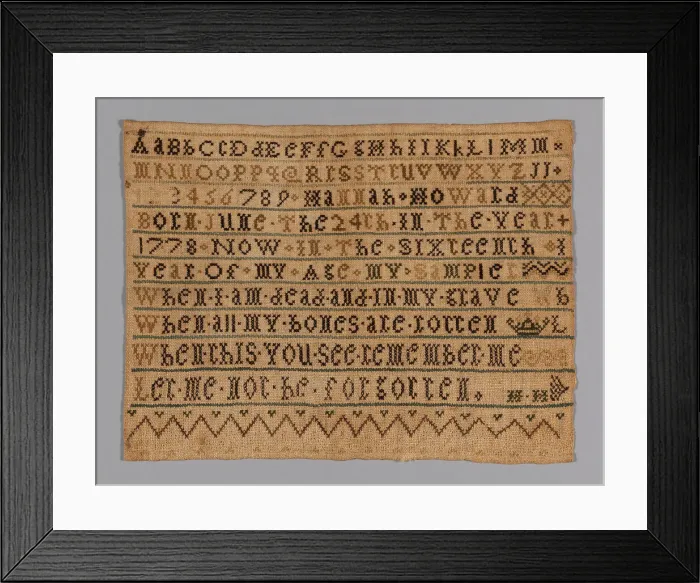 AaBbCcDdEeFfGgHhIiKkLlMm
NnOoPpQqRrSsTtUVWXYZ
3456789 Hannah Howard
Born June The 24th In The Year
1778 Now In The Sixteenth
Year Of my Age my Sample
When I am dead and In my grave
When all my bones are rotten
When this You see remember me
Let me not be forgotten. H H